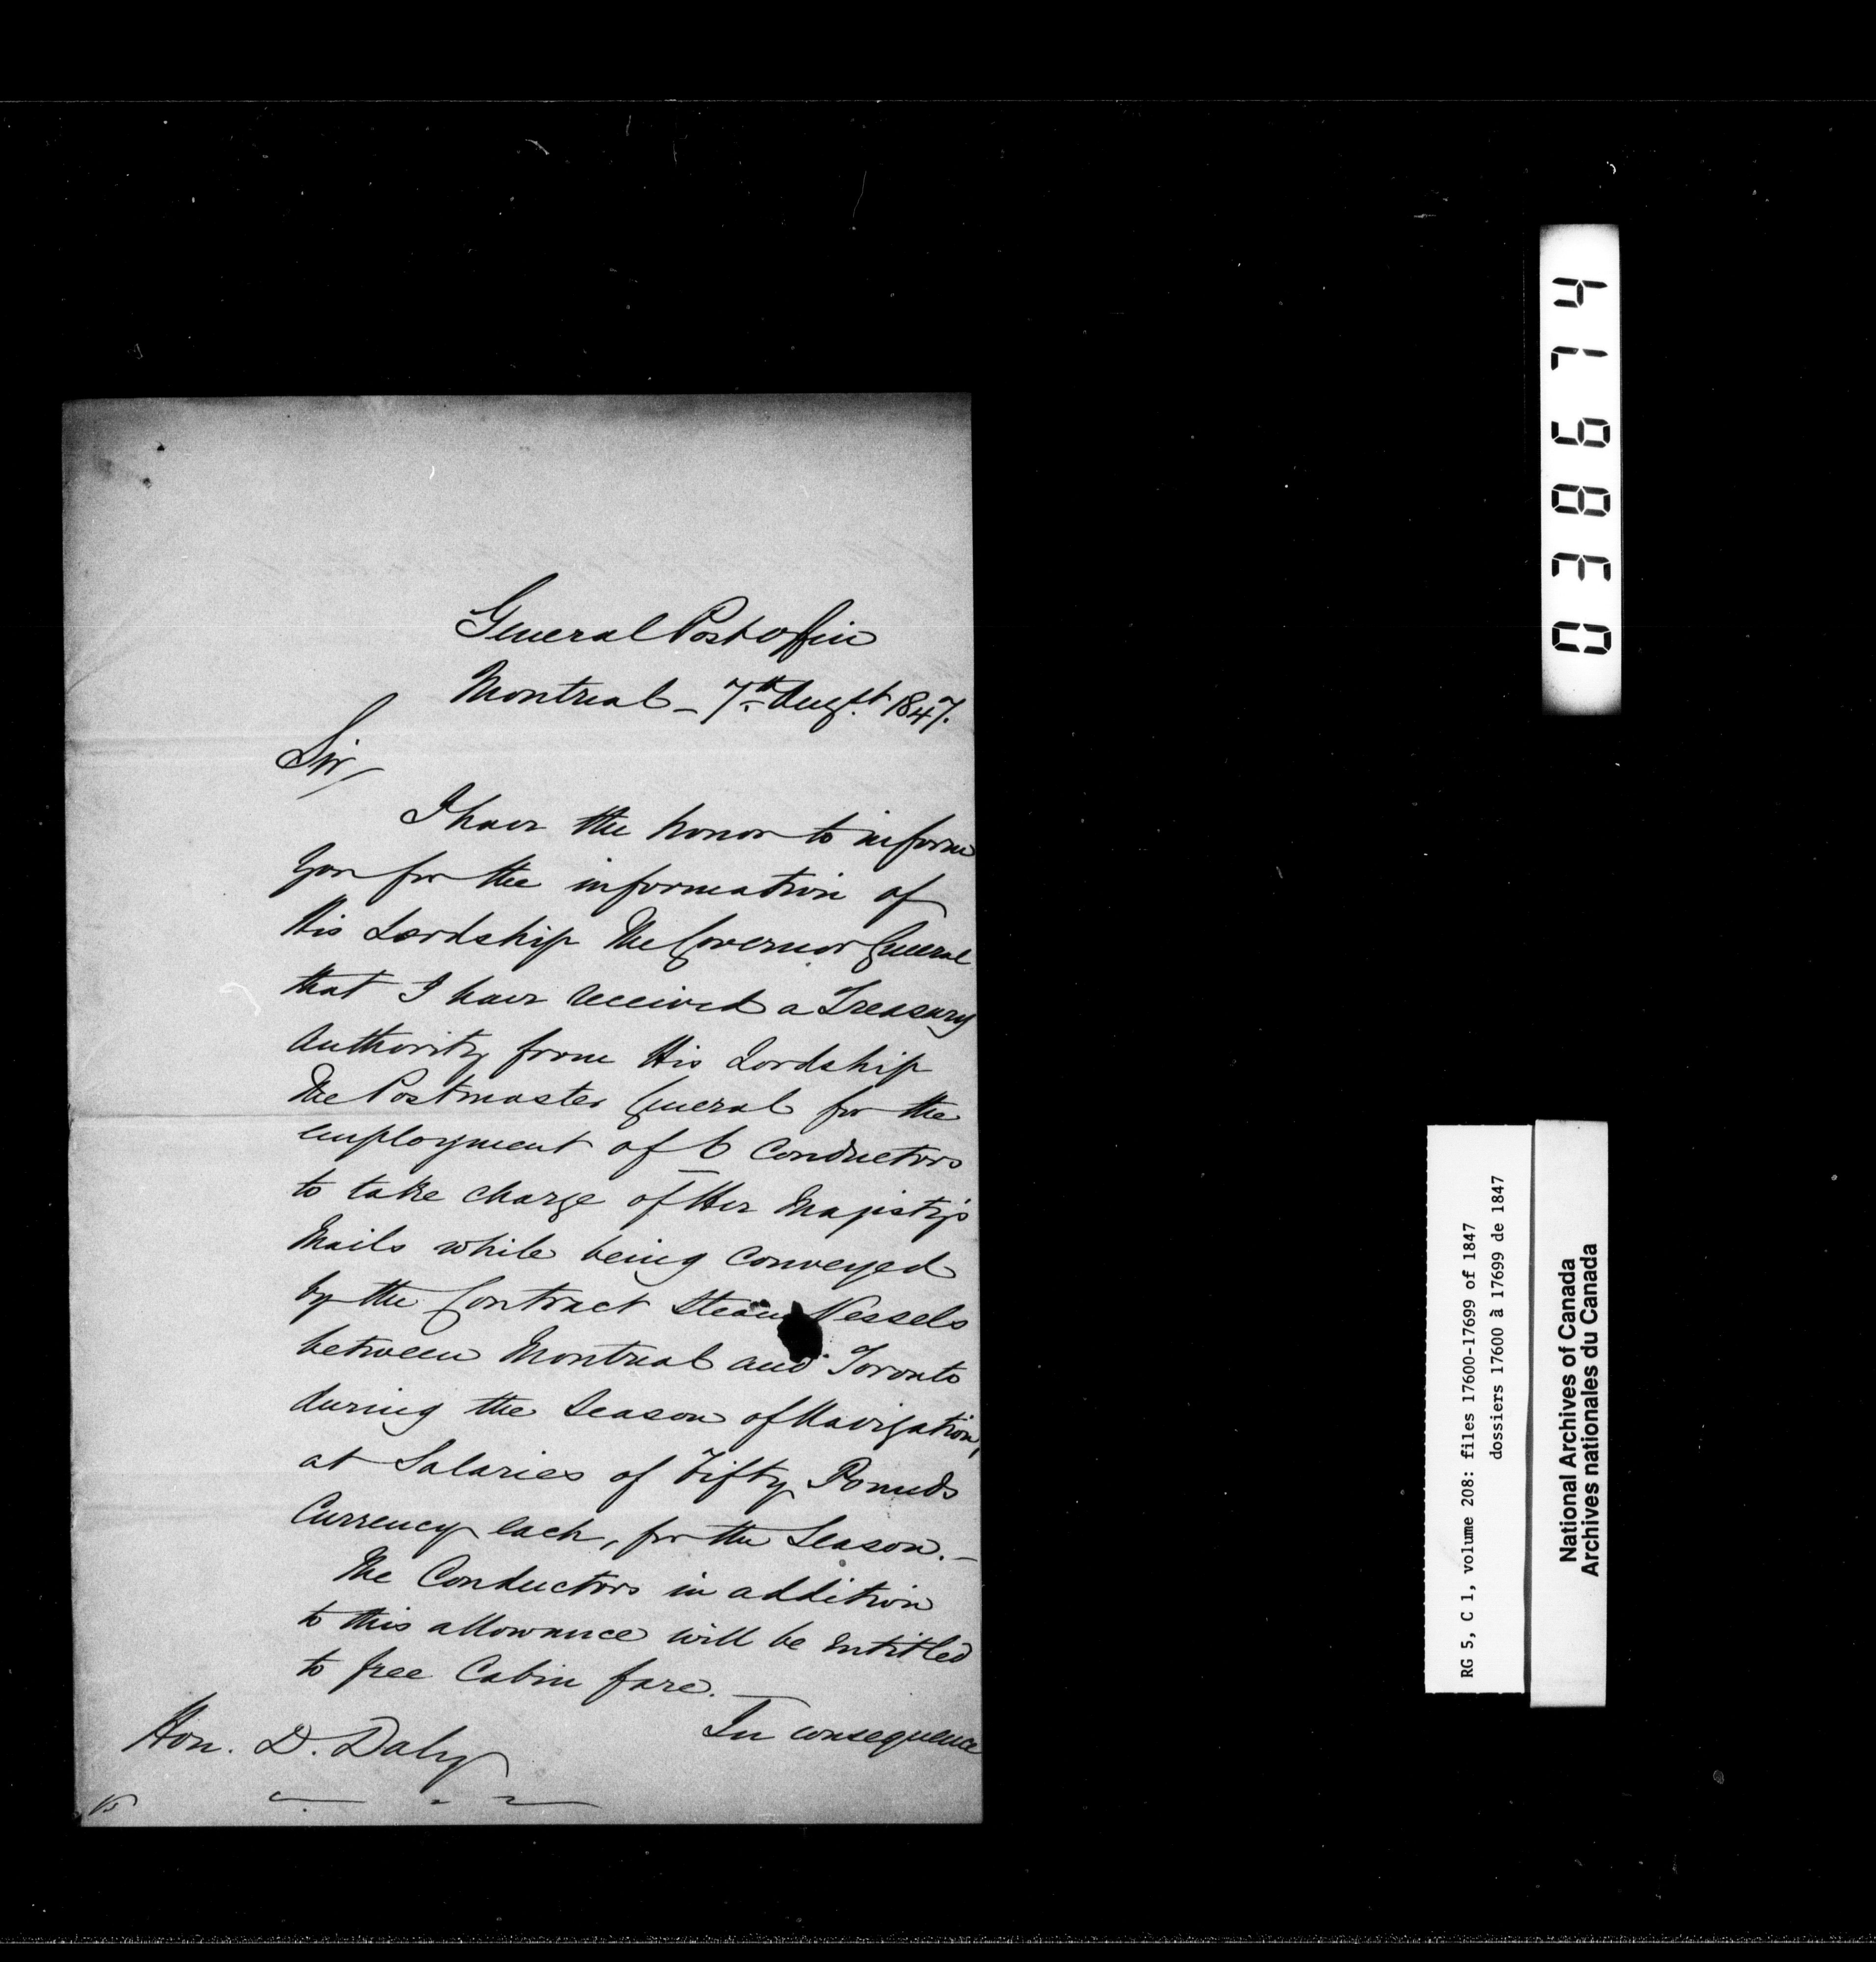 General Post Office
Montreal - 7th Augst. 1847.
Sir,
I have the honor to inform
you for the information of
His Lordship The Governor General
that I have received a Treasury
Authority from His Lordship
The Postmaster General for the
employment of 6 Conductors
to take charge of Her Majesty's
Mails while being conveyed
by the Contract Steam Vessels
between Montreal and Toronto
during the Season of Navigation,
at Salaries of Fifty Pounds
Currency each, for the Season. -
The Conductors in addition
to this allowance will be entitled
to free Cabin fare.
In consequence
Hon. D. Daly
038674
RG 5, C 1, volume 208: files 17600-17699 of 1847
dossiers 17600 à 17699 de 1847
National Archives of Canada
Archives nationales du Canada